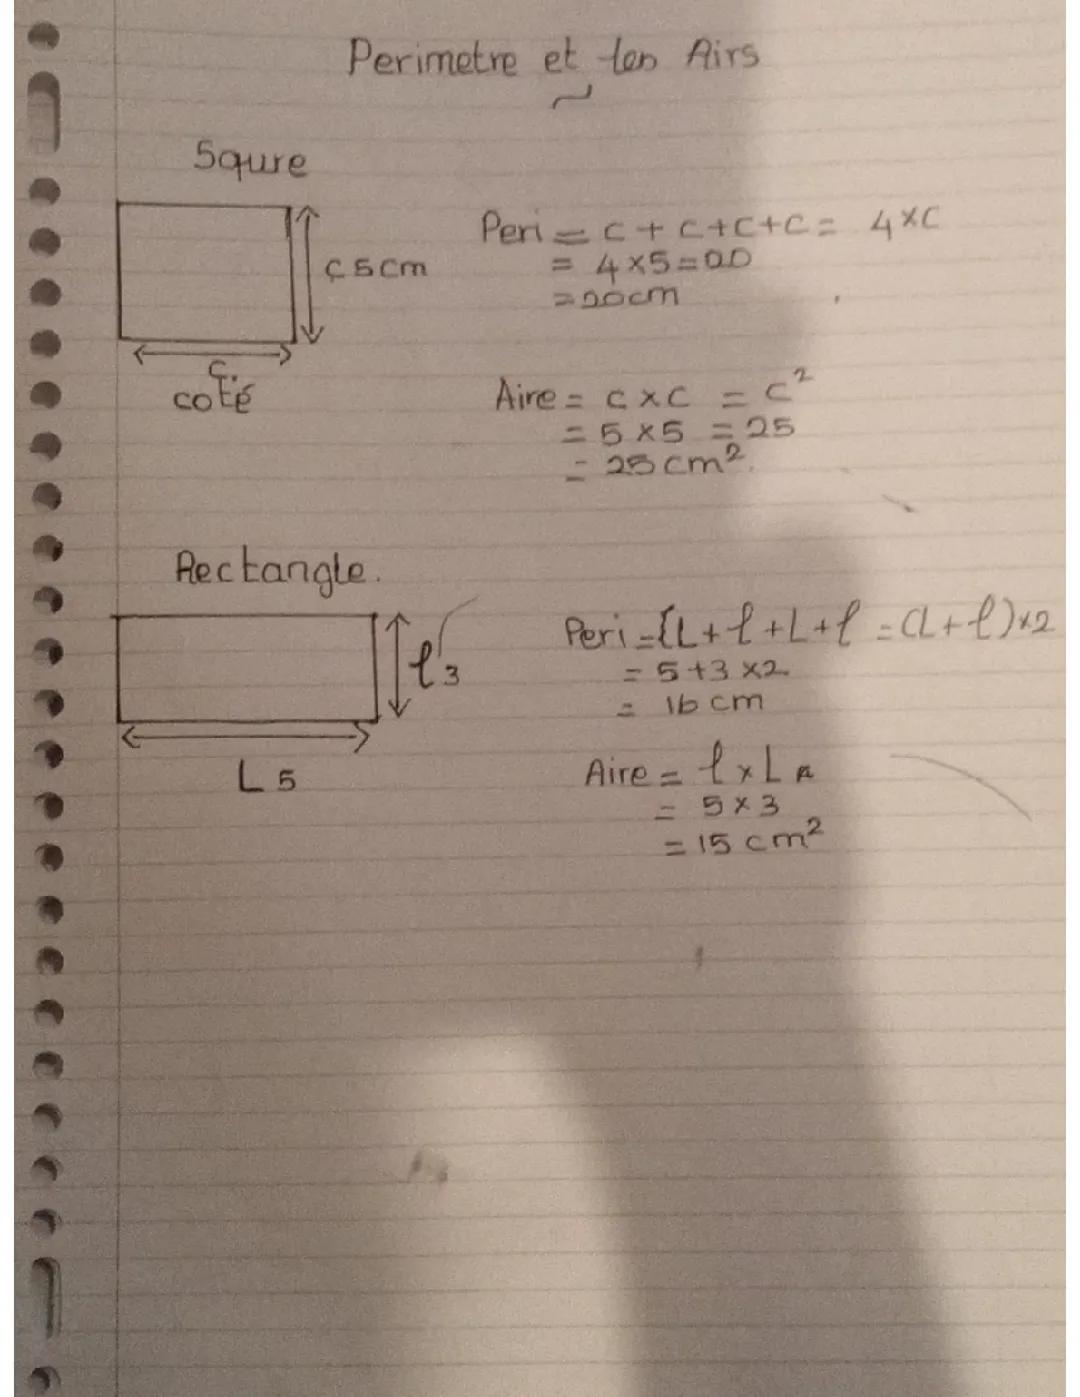 Perimetre et les Airs
Squre
c 5cm
c.
coté
Peri = c + c+c+c = 4×c
= 4×5=20
=20cm
Aire = c×c = c²
= 5×5 = 25
= 25cm².
Rectangle.
l 3
L 5
Peri ={L+l+L+l =(L+l)×2
= 5+3×2
= 16 cm
Aire = l×L
= 5×3
= 15 cm²